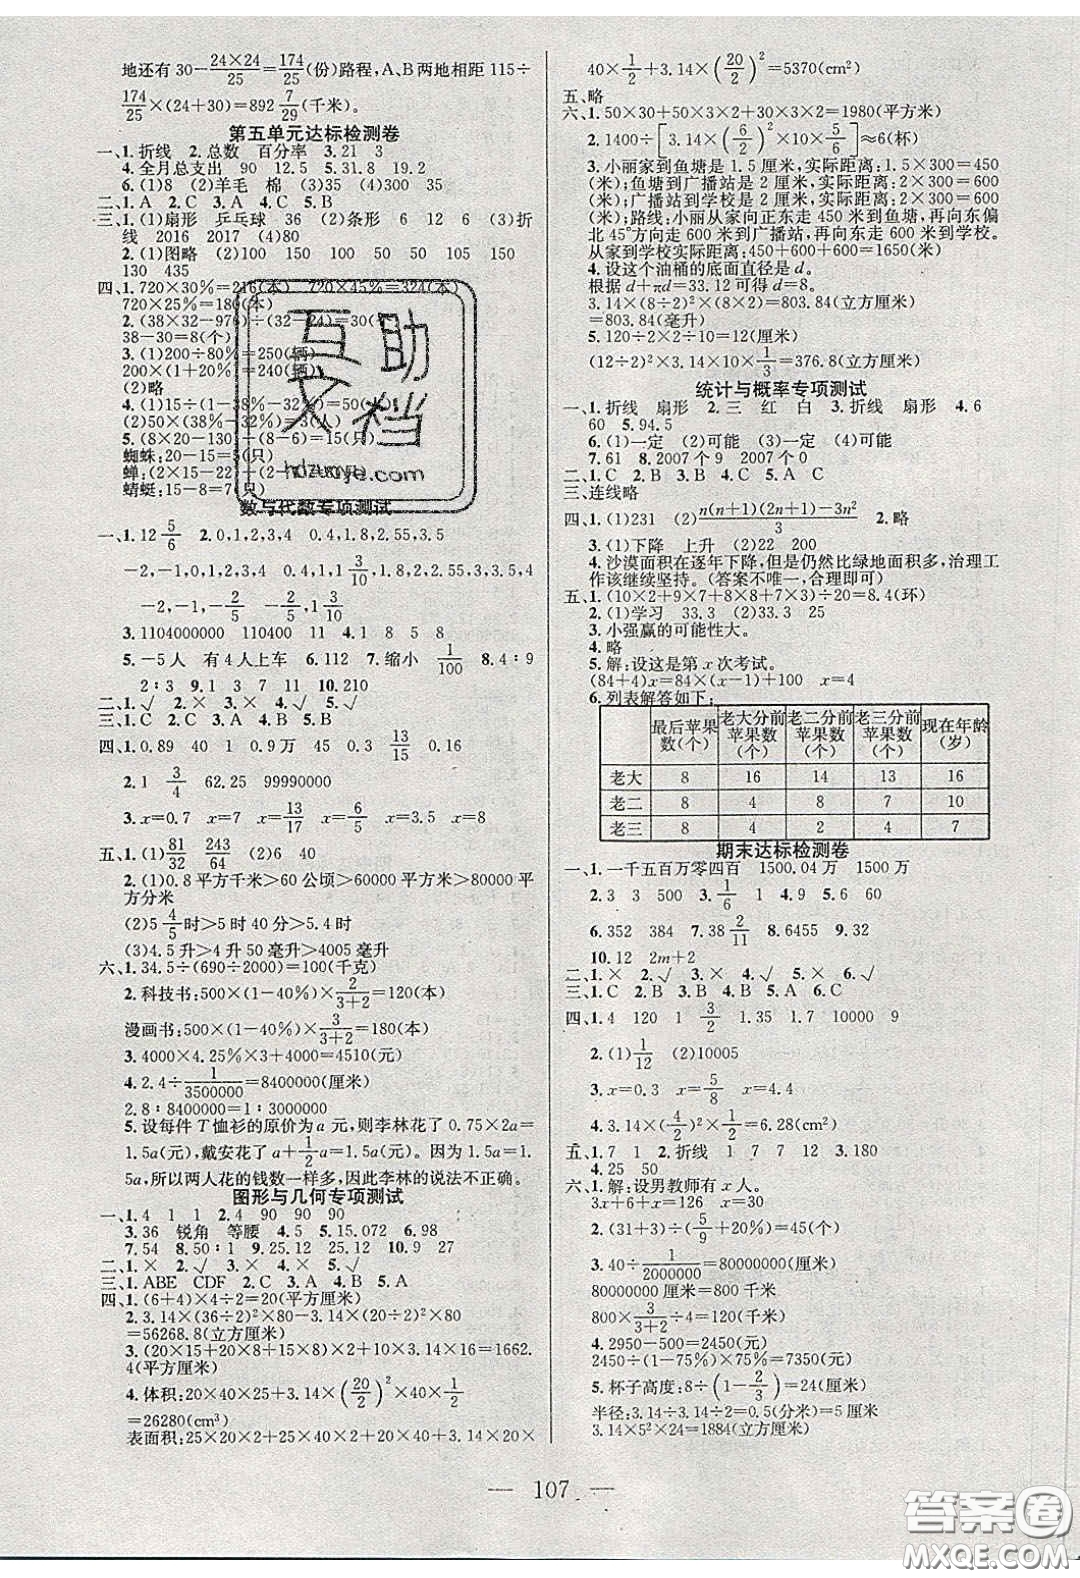 地还有30−24×24/25=174/25(份)路程,A、B两地相距115÷
174/25×(24+30)=892 7/29(千米)。
第五单元达标检测卷
一、1.折线 2.总数 百分率 3.21 3
4.全月总支出 90 12.5 5.31.8 19.2
6.(1)8 (2)羊毛 棉 (3)35 (4)300 35
二、1.A 2.C 3.A 4.C 5.B
三、1.(1)扇形 乒乓球 36 (2)条形 6 12 6 (3)折
线 2016 2017 (4)80
2.(1)图略 (2)100 150 100 50 150 50
130 435
四、1.720×30%=216(本) 720×45%=324(本)
720×25%=180(本)
2.(38×32−976)÷(32−24)=30(个)
38−30=8(个)
3.(1)200÷80%=250(辆)
200×(1+20%)=240(辆)
(2)略
4.(1)15÷(1−38%−32%)=50(人)
(2)50×(38%−32%)=3(人)
5.(8×20−130)÷(8−6)=15(只)
蜘蛛:20−15=5(只)
蝉:(2×15−22)÷(2−1)=8(只)
蜻蜓:15−8=7(只)
数与代数专项测试
一、1.12 5/6 2.0,1,2,3,4 0.4,1.8,2.55,3.5
−2,−1,0,1,2,3,4 0.4,1,3/10,1.8,2,2.55,3,3.5,4
−2,−1,−2/5 −2/5 1,3/10
3.1104000000 110400 11 4.1 8 5 8
5.−5人 有4人上车 6.112 7.缩小 1/100 8.4∶9
2∶3 9.1 3 7 21 10.210
二、1.√ 2.× 3.× 4.√ 5.√
三、1.C 2.C 3.A 4.B 5.C
四、1.0.89 40 1 0.9万 45 0.3 13/15 0.16
2.1 3/4 62.25 99990000
3.x=0.7 x=7 x=13/17 x=6/5 x=3.5 x=8
五、1.(1)81/32 243/64 (2)6 40
2.(1)0.8平方千米>60公顷>60000平方米>80000平
方分米
(2)5 4/5时>5时40分>5.4时
(3)4.5升>4升50毫升>4005毫升
六、1.34.5÷(690÷2000)=100(千克)
2.科技书:500×(1−40%)×2/(3+2)=120(本)
漫画书:500×(1−40%)×3/(3+2)=180(本)
3.4000×4.25%×3+4000=4510(元)
4.2.4÷1/3500000=8400000(厘米)
2.8∶8400000=1∶3000000
5.设每件T恤衫的原价为a元,则李林花了0.75×2a=
1.5a(元),戴安花了a+1/2a=1.5a(元)。因为1.5a=1.
5a,所以两人花的钱数一样多,因此李林的说法不正确。
图形与几何专项测试
一、1.4 1 1 2.4 90 90 90
3.36 锐角 等腰 4.5 5.15.072 6.98
7.54 8.50∶1 9.25.12 25.12 10.9 27
二、1.× 2.√ 3.× 4.√ 5.√
三、1.ABE CDF 2.C 3.A 4.B 5.A
四、1.(6+4)×4÷2=20(平方厘米)
2.3.14×(36÷2)²×80−3.14×(20÷2)²×80
=56268.8(立方厘米)
3.(20×15+20×8+15×8)×2+10×15×2=1662.
4(平方厘米)
4.体积:20×40×25+3.14×(20/2)²×40×1/2
=26280(cm³)
表面积:25×20×2+25×40×2+40×20+3.14×20×
40×1/2+3.14×(20/2)²=5370(cm²)
五、略
六、1.50×30+50×3×2+30×3×2=1980(平方米)
2.1400÷[3.14×(6/2)²×10×5/6]≈6(杯)
3.小丽家到鱼塘是1.5厘米,实际距离:1.5×300=450
(米);鱼塘到广播站是2厘米,实际距离:2×300=600
(米);广播站到学校是2厘米,实际距离:2×300=600
(米);路线:小丽从家向正东走450米到鱼塘,再向东偏
北45°方向走600米到广播站,再向正东走600米到学校。
从家到学校实际距离:450+600+600=1650(米)
4.设这个油桶的底面直径是d。
根据d+πd=33.12可得d=8。
3.14×(8÷2)²×(8×2)=803.84(立方厘米)
=803.84(毫升)
5.120÷2×2÷10=12(厘米)
(12÷2)²×3.14×10×1/3=376.8(立方厘米)
统计与概率专项测试
一、1.折线 扇形 2.三 红 白 3.折线 扇形 4.6
60 5.94.5
6.(1)一定 (2)可能 (3)一定 (4)可能
7.61 8.2007个9 2007个0
二、1.C 2.B 3.B 4.C 5.A
三、连线略
四、1.(1)231 (2)n(n+1)(2n+1)−3n²/3 2.略
3.(1)下降 上升 (2)22 200
4.沙漠面积在逐年下降,但是仍然比绿地面积多,治理工
作该继续坚持。(答案不唯一,合理即可)
五、1.(10×2+9×7+8×8+7×3)÷20=8.4(环)
2.(1)学习 33.3 (2)33.3 25
3.小强赢的可能性大。
4.略
5.解:设这是第x次考试。
(84)x=84×(x−1)+100 x=4
6.列表解答如下:
最后苹果数(个) 老大分前苹果数(个) 老二分前苹果数(个) 老三分前苹果数(个) 现在年龄(岁)
老大 8 16 14 13 16
老二 8 4 8 7 10
老三 8 4 2 4 7
期末达标检测卷
一、1.一千五百万零四百 1500.04万 1500万
2.3 3 500 3.1/6 1 4.9 5.6 60
6.352 384 7.38 2/11 8.6455 9.32
10.12 2m+2
二、1.× 2.√ 3.× 4.√ 5.√
三、1.C 2.B 3.B 4.B 5.A 6.C
四、1.4 120 1 3/2 1.35 1.7 10000 9
2.(1)1/12 (2)10005
3.x=0.3 x=5/8 x=4.8
4.3.14×(4/2)²×1/2=6.28(cm²)
五、1.7 1 2.折线 1 7 7 12 3.180
4.25 50
六、1.解:设男教师有x人。
3x+6+x=36 x=10
2.(31+3)÷(5/9+20%)=45(个)
3.40÷1/2000000=80000000(厘米)
80000000厘米=800千米
800×3/(3+2)÷4=120(千米)
4.2950−500=2450(元)
2450÷(1−75%)×75%=7350(元)
5.杯子高度:8÷(1−2/3)=24(厘米)
半径:3.14÷3.14÷2=0.5(分米)=5厘米
3.14×5²×24=1884(立方厘米)
— 107 —
互助
文档
hdzuoye.com
答案圈
MXQE.COM